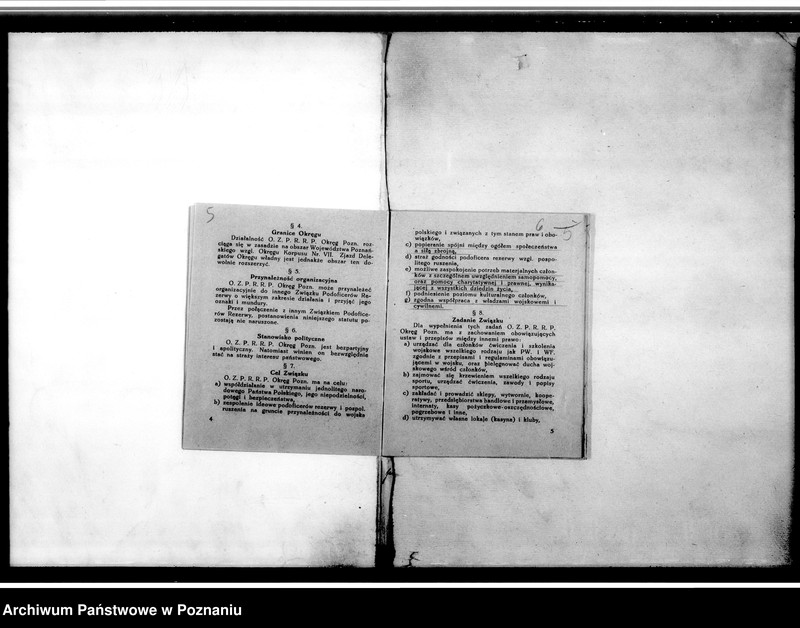 5
§ 4.
Granice Okręgu
Działalność O. Z. P. R. R. P. Okręg Pozn. roz-
ciąga się w zasadzie na obszar Województwa Poznań-
skiego wzgl. Okręgu Korpusu Nr. VII. Zjazd Dele-
gatów Okręgu władny jest jednakże obszar ten do-
wolnie rozszerzyć.
§ 5.
Przynależność organizacyjna
O. Z. P. R. R. P. Okręg Pozn. może przynależeć
organizacyjnie do innego Związku Podoficerów Re-
zerwy o większym zakresie działania i przyjąć jego
oznaki i mundury.
Przez połączenie z innym Związkiem Podofice-
rów Rezerwy, postanowienia niniejszego statutu po-
zostają nie naruszone.
§ 6.
Stanowisko polityczne
O. Z. P. R. R. P. Okręg Pozn. jest bezpartyjny
i apolityczny. Natomiast winien on bezwzględnie
stać na straży interesu państwowego.
§ 7.
Cel Związku
O. Z. P. R. R. P. Okręg Pozn. ma na celu:
a) współdziałanie w utrzymaniu jednolitego naro-
dowego Państwa Polskiego, jego niepodzielności,
potęgi i bezpieczeństwa,
b) zespolenie ideowe podoficerów rezerwy i pospol.
ruszenia na gruncie przynależności do wojska
4
6
5
polskiego i związanych z tym stanem praw i obo-
wiązków,
c) popieranie spójni między ogółem społeczeństwa
a siłą zbrojną,
d) straż godności podoficera rezerwy wzgl. pospo-
litego ruszenia,
e) możliwe zaspokojenie potrzeb materjalnych człon-
ków z szczególnem uwzględnieniem samopomocy,
oraz pomocy charytatywnej i prawnej, wynika-
jącej z wszystkich dziedzin życia,
f) podniesienie poziomu kulturalnego członków,
g) zgodna współpraca z władzami wojskowemi i
cywilnemi.
§ 8.
Zadanie Związku
Dla wypełnienia tych zadań O. Z. P. R. R. P.
Okręg Pozn. ma z zachowaniem obowiązujących
ustaw i przepisów między innemi prawo:
a) urządzać dla członków ćwiczenia i szkolenia
wojskowe wszelkiego rodzaju jak PW. i WF.
zgodnie z przepisami i regulaminami obowiązu-
jącemi w wojsku, oraz pielęgnować ducha woj-
skowego wśród członków,
b) zajmować się krzewieniem wszelkiego rodzaju
sportu, urządzać ćwiczenia, zawody i popisy
sportowe,
c) zakładać i prowadzić sklepy, wytwornie, koope-
ratywy, przedsiębiorstwa handlowe i przemysłowe,
internaty, kasy pożyczkowo-oszczędnościowe,
pogrzebowe i inne,
d) utrzymywać własne lokale (kasyna) i kluby,
5
Archiwum Państwowe w Poznaniu